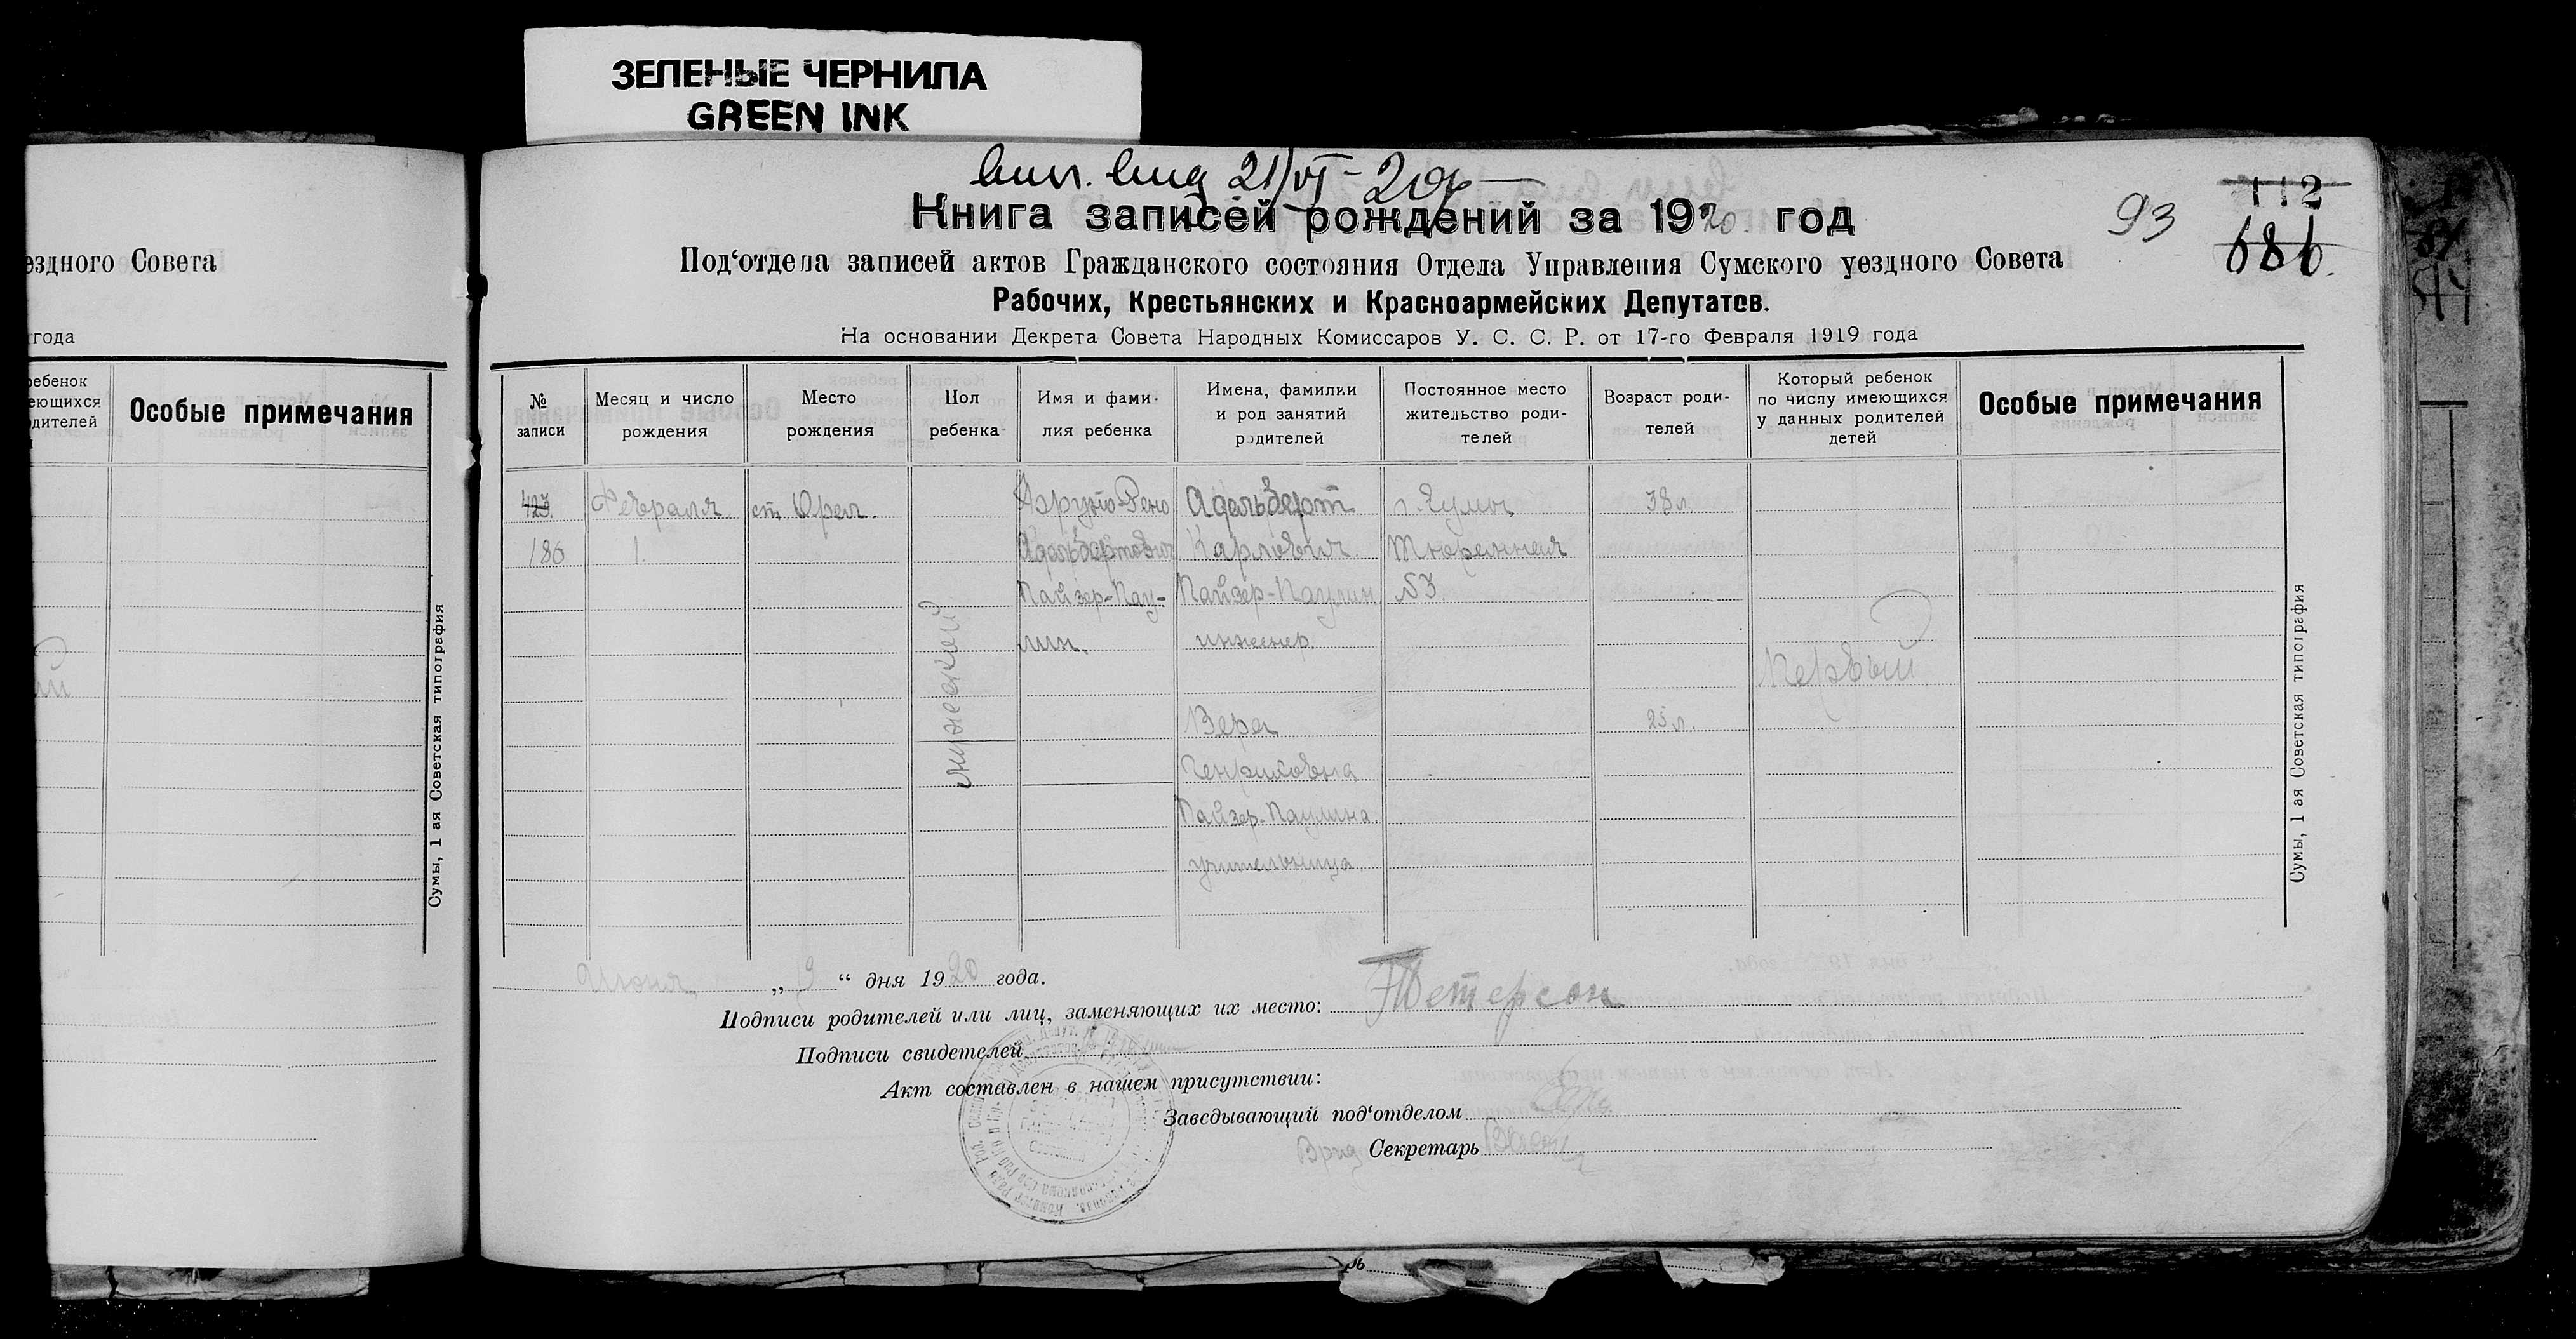 ЗЕЛЕНЫЕ ЧЕРНИЛА
GREEN INK
21/VI-20
Книга записей рождений за 1920 год
93
112
686
Под‘отдела записей актов Гражданского состояния Отдела Управления Сумского уездного Совета
Рабочих, Крестьянских и Красноармейских Депутатов.
На основании Декрета Совета Народных Комиссаров У. С. С. Р. от 17-го Февраля 1919 года
ездного Совета
года
ребенок
еющихся
одителей
Особые примечания
Сумы, 1 ая Советская типография
№ записи
Месяц и число рождения
Место рождения
Пол ребенка
Имя и фами-
лия ребенка
Имена, фамилии
и род занятий
родителей
Постоянное место
жительство роди-
телей
Возраст роди-
телей
Который ребенок
по числу имеющихся
у данных родителей
детей
Особые примечания
423. Февраля ст. Орел. Адельберт г. Сумы 38 л.
186 1. Адельбертович Карлович Тюремная
Пайзер-Пау- Пайзер-Паулин №3
лин. инженер
мужской
Первый
Вера 25 л.
Генриховна
Пайзер-Паулина
учительница
Сумы, 1 ая Советская типография
Июня „ 9 “ дня 1920 года.
Подписи родителей или лиц, заменяющих их место: Петерсон
Подписи свидетелей
Акт составлен в нашем присутствии:
Заведывающий под‘отделом
Врид Секретарь